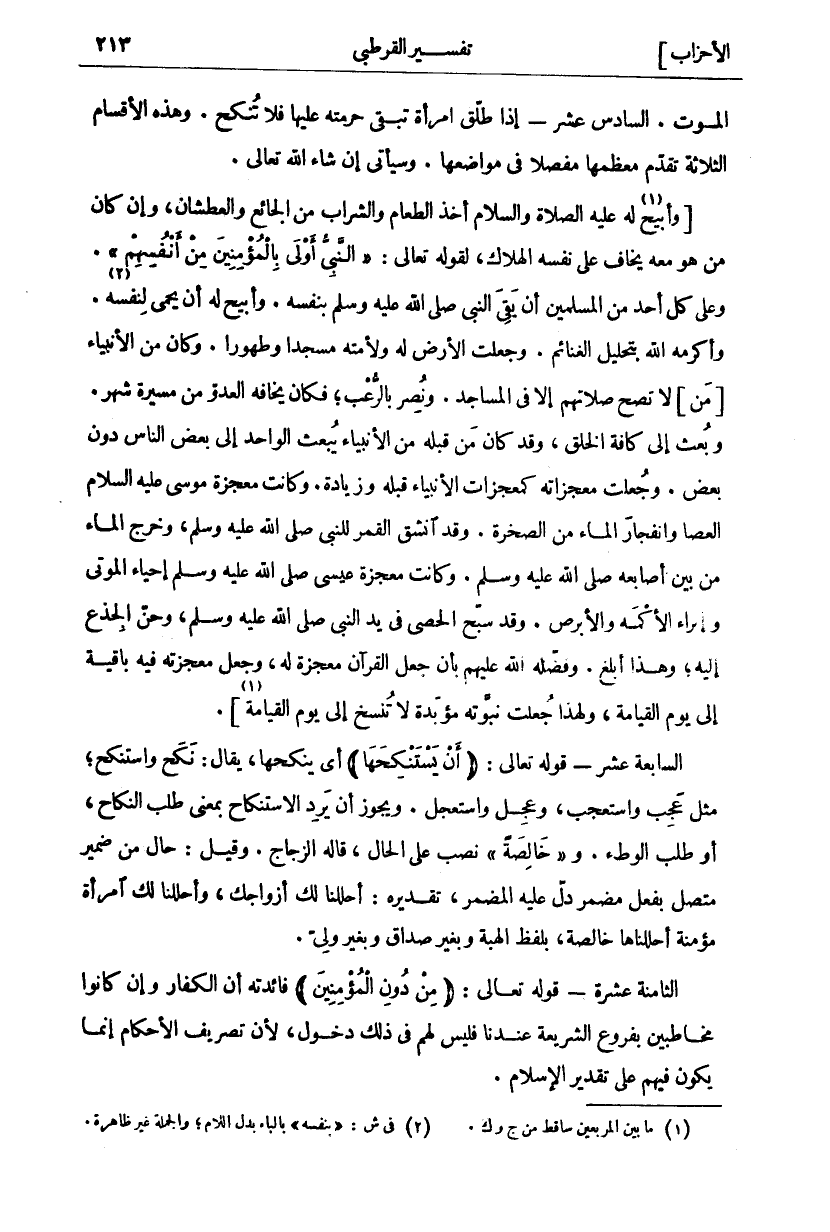 الأحزاب ] تفسير القرطبي ٢١٣
الموت . السادس عشر — إذا طلّق امرأة تبقى حرمته عليها فلا تُنكح . وهذه الأقسام
الثلاثة تقدّم معظمها مفصلا فى مواضعها . وسيأتى إن شاء الله تعالى .
[ وأبيح(١) له عليه الصلاة والسلام أخذ الطعام والشراب من الجائع والعطشان، وإن كان
من هو معه يخاف على نفسه الهلاك، لقوله تعالى : « النَّبِيُّ أَوْلَى بِالْمُؤْمِنِينَ مِنْ أَنْفُسِهِمْ » .
وعلى كل أحد من المسلمين أن يَقِيَ النبي صلى الله عليه وسلم بنفسه . وأبيح له أن يحمى لِنفسه(٢) .
وأكرمه الله بتحليل الغنائم . وجعلت الأرض له ولأمته مسجدا وطهورا . وكان من الأنبياء
[ مَن ] لا تصح صلاتهم إلا فى المساجد . ونُصِر بالرُّعْب؛ فكان يخافه العدوّ من مسيرة شهر .
وبُعث إلى كافة الخلق ، وقد كان مَن قبله من الأنبياء يُبعث الواحد إلى بعض الناس دون
بعض . وجُعلت معجزاته كمعجزات الأنبياء قبله وزيادة. وكانت معجزة موسى عليه السلام
العصا وانفجارَ الماء من الصخرة . وقد ٱنشق القمر للنبي صلى الله عليه وسلم، وخرج الماء
من بين أصابعه صلى الله عليه وسلم . وكانت معجزة عيسى صلى الله عليه وسلم إحياء الموتى
وإبراء الأكْمَه والأبرص . وقد سبّح الحصى فى يد النبي صلى الله عليه وسلم، وحنّ الجِذع
إليه؛ وهذا أبلغ . وفضّله الله عليهم بأن جعل القرآن معجزة له ، وجعل معجزته فيه باقية
إلى يوم القيامة ، ولهذا جُعلت نبوّته مؤبّدة لا تُنسخ إلى يوم القيامة(١) ] .
السابعة عشر — قوله تعالى : ﴿ أَنْ يَسْتَنْكِحَهَا ﴾ أى ينكحها، يقال: نَكَح واستنكح؛
مثل عَجِب واستعجب، وعجِل واستعجل . ويجوز أن يَرِد الاستنكاح بمعنى طلب النكاح ،
أو طلب الوطء . و « خَالِصَةً » نصب على الحال ، قاله الزجاج . وقيل : حال من ضمير
متصل بفعل مضمر دلّ عليه المضمر، تقديره : أحللنا لك أزواجك ، وأحللنا لك ٱمرأة
مؤمنة أحللناها خالصة، بلفظ الهبة وبغير صداق وبغير ولىّ .
الثامنة عشرة — قوله تعالى : ﴿ مِنْ دُونِ الْمُؤْمِنِينَ ﴾ فائدته أن الكفار وإن كانوا
مخاطبين بفروع الشريعة عندنا فليس لهم فى ذلك دخول، لأن تصريف الأحكام إنما
يكون فيهم على تقدير الإسلام .
(١) ما بين المربعين ساقط من ج و ك . (٢) فى ش : «بنفسه» بالباء بدل اللام؛ والجملة غير ظاهرة .